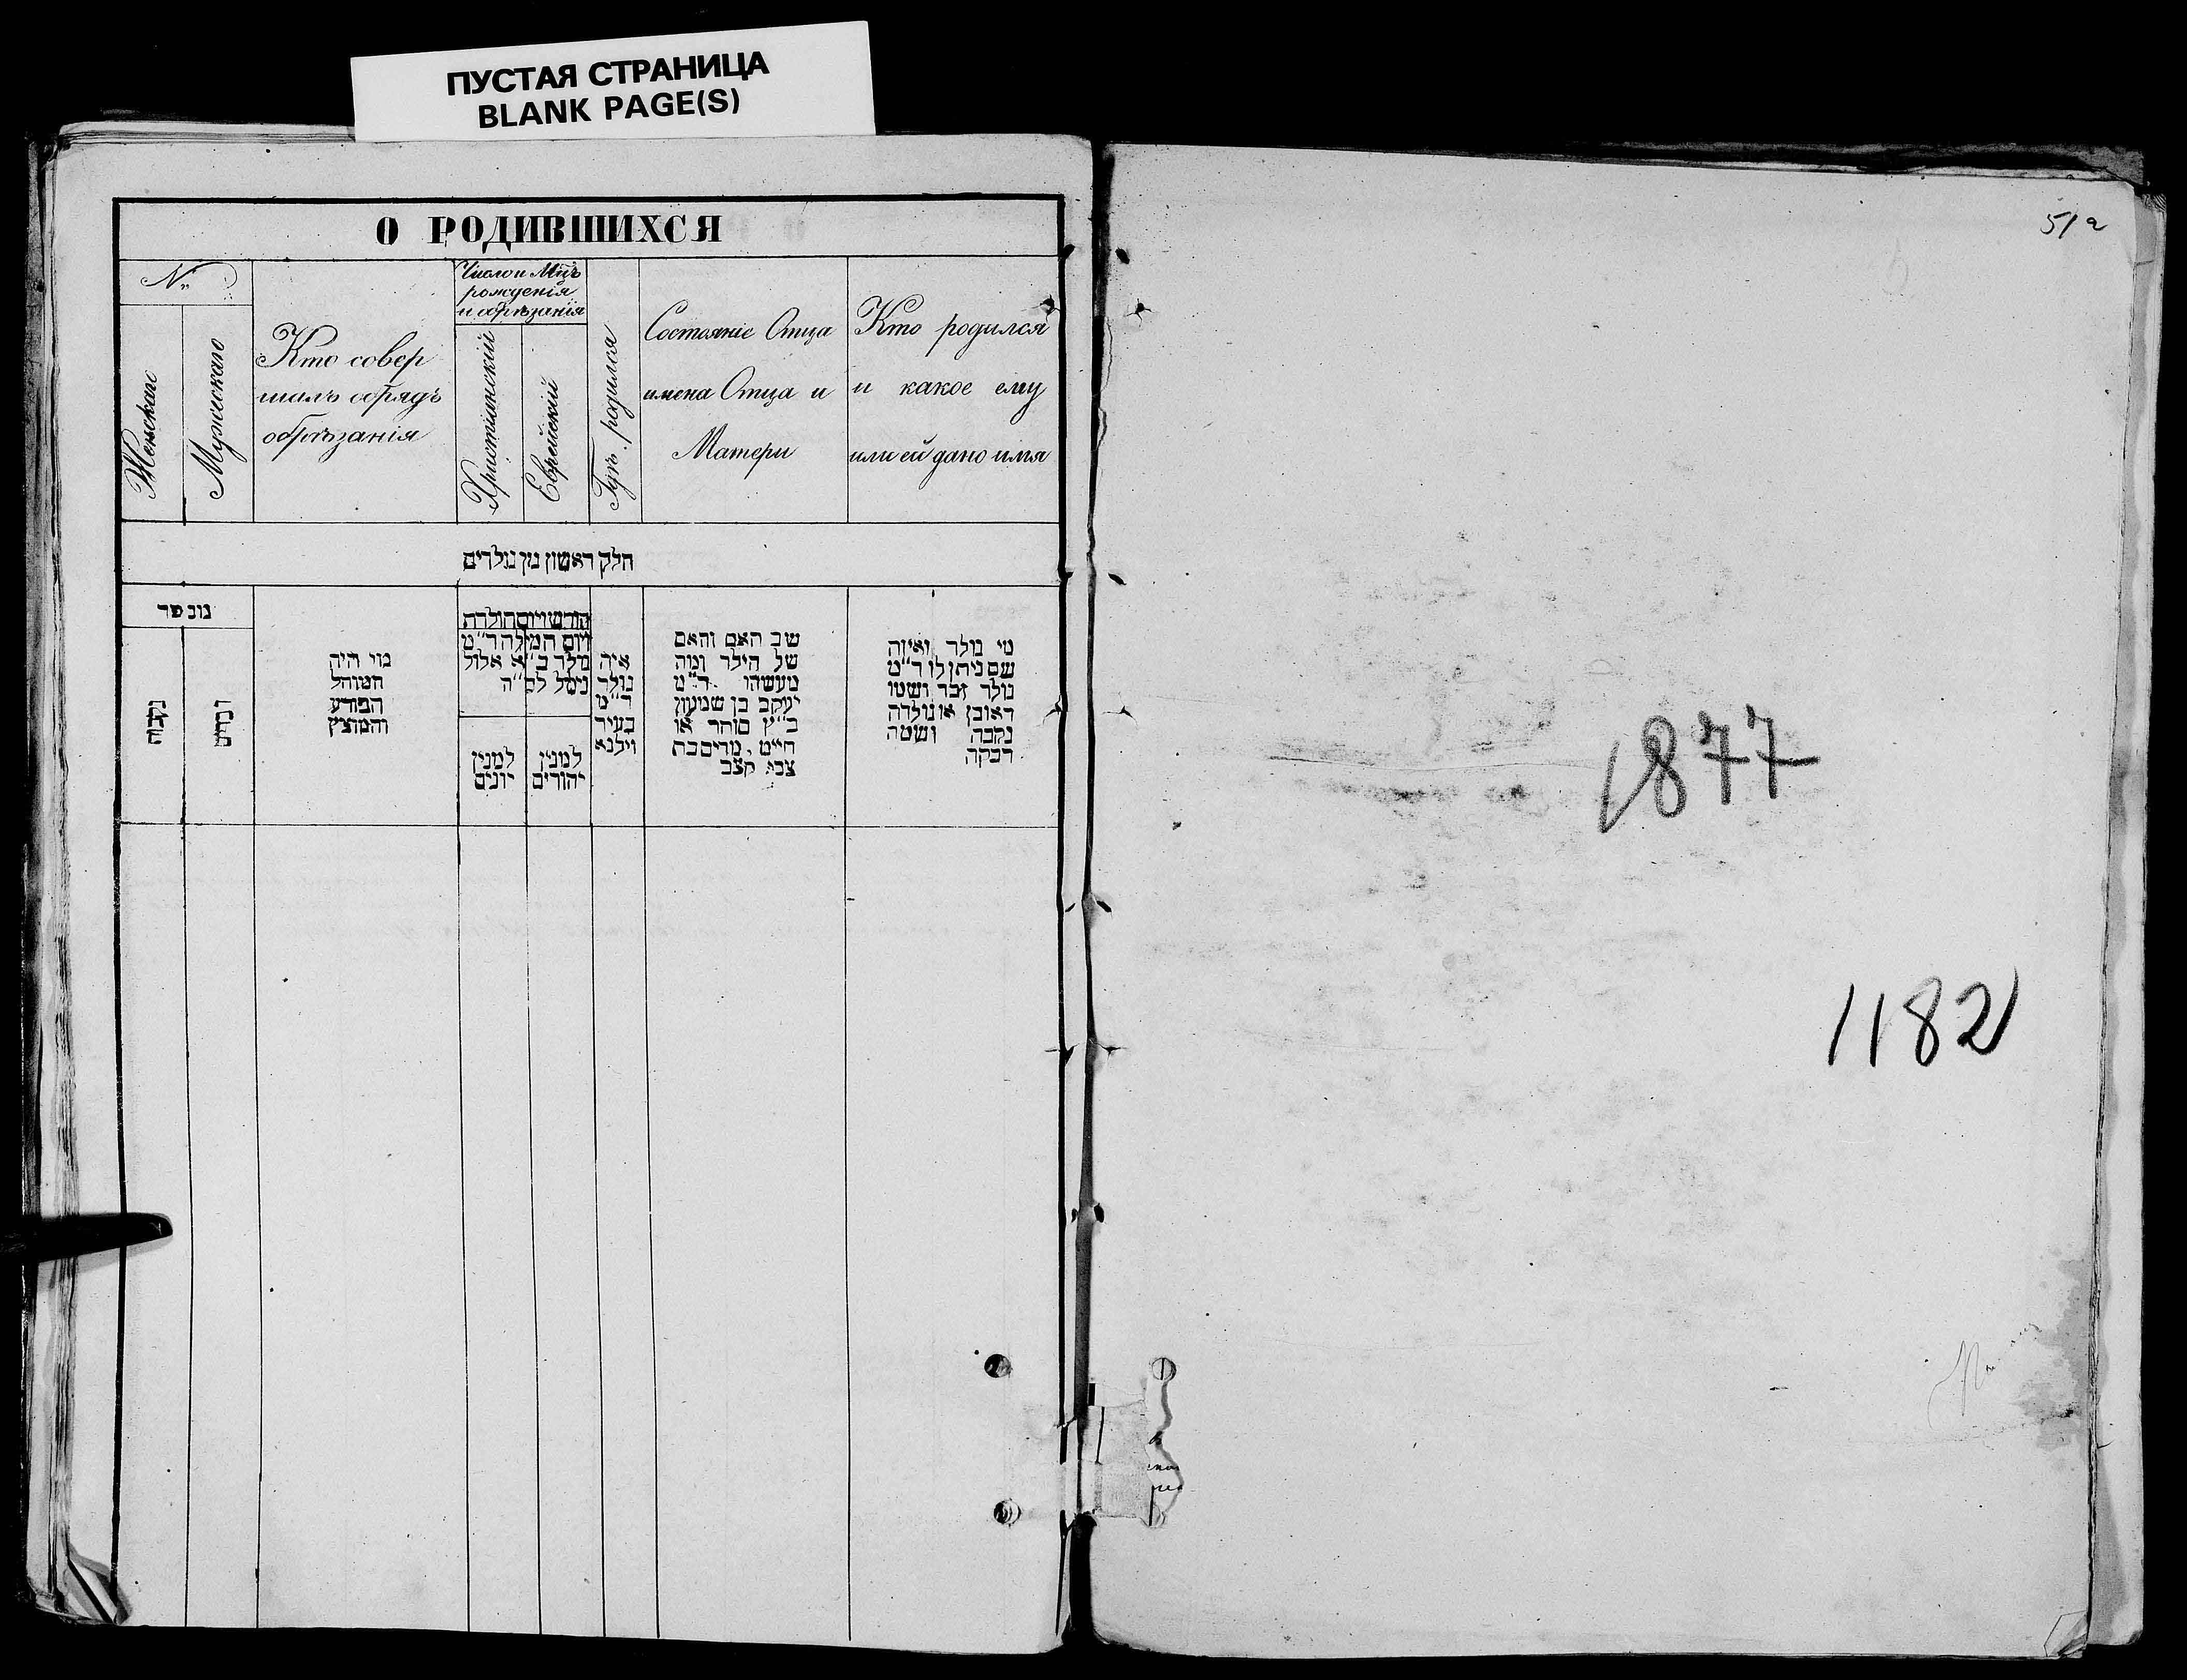 ПУСТАЯ СТРАНИЦА
BLANK PAGE(S)
О РОДИВШИХСЯ
№
Женскаго
Мужескаго
Кто совер
шалъ обрядъ
обрѣзанія
Число и Мцъ
рожденія
и обрѣзанія
Христіанскій
Еврейскій
Гдѣ родился
Состояніе Отца
имена Отца и
Матери
Кто родился
и какое ему
или ей дано имя
חלק ראשון מן נולדים
נומפר
נקבות
זכרים
מי היה
המוהל
הפורע
והמוצץ
חודש ויום הולדת
ויום המילה ד״מ
נולד ב״א אלול
נימל לס״ה
למנין
יונים
למנין
יהודים
איה
נולד
ד״מ
בעיר
וילנא
שב האם והאם
של הילד ומה
מעשהו ד״מ
יעקב בן שמעון
כ״ץ סוחר או
חייט, מרים בת
צבא קצב
מי נולד ואיזה
שם ניתן לו ד״מ
נולד זכר ושמו
ראובן או נולדה
נקבה ושמה
רבקה
51a
1877
1182